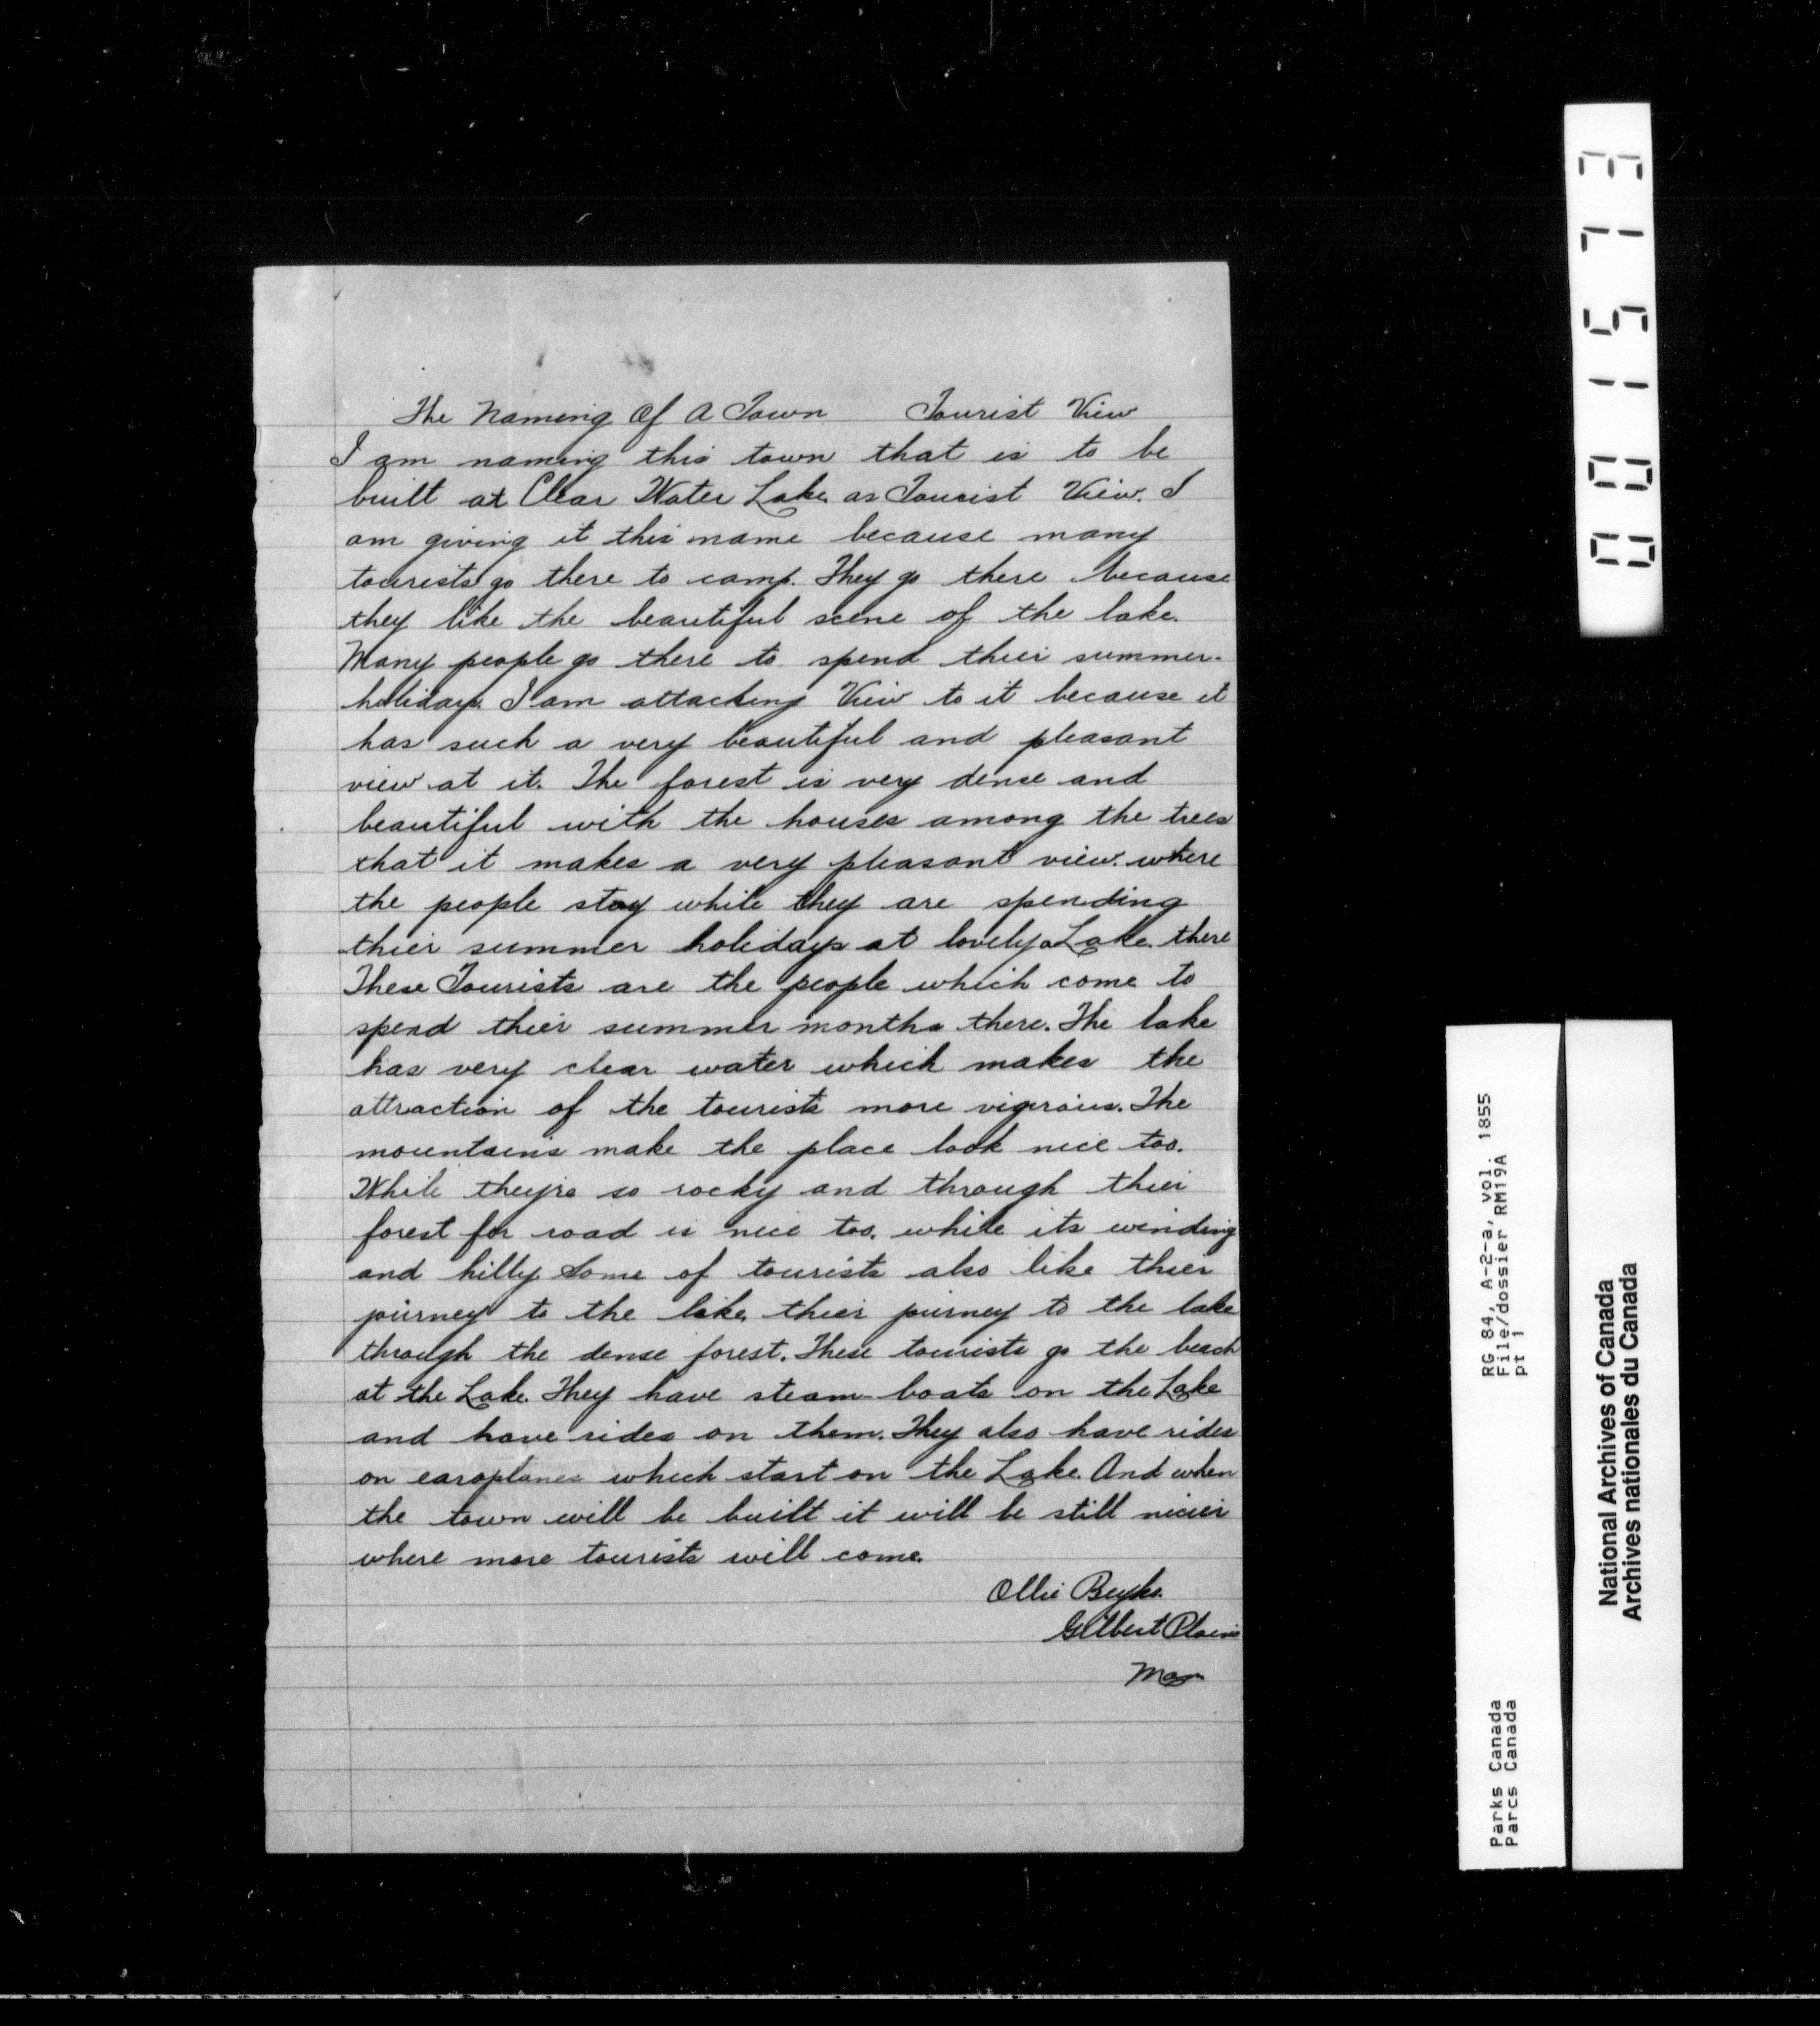 The Naming Of A Town Tourist View
I am naming this town that is to be
built at Clear Water Lake as Tourist View. I
am giving it this name because many
tourists go there to camp. They go there because
they like the beautiful scene of the lake.
Many people go there to spend thier summer-
holidays. I am attaching View to it because it
has such a very beautiful and pleasant
view at it. The forest is very dense and
beautiful with the houses among the trees
that it makes a very pleasant view where
the people stay while they are spending
thier summer holidays at lovely a Lake there
These Tourists are the people which come to
spend thier summer months there. The lake
has very clear water which makes the
attraction of the tourists more vigorous. The
mountains make the place look nice too.
While they're so rocky and through thier
forest for road is nice too, while its winding
and hilly. Some of tourists also like thier
journey to the lake, thier journey to the lake
through the dense forest. These tourists go the beach
at the Lake. They have steam-boats on the Lake
and have rides on them. They also have rides
on earoplanes which start on the Lake. And when
the town will be built it will be still nicier
where more tourists will come.
Ollie
Gilbert Plains
Man
001573
RG 84, A-2-a, vol. 1855
File/dossier RM19A
pt 1
Parks Canada
Parcs Canada
National Archives of Canada
Archives nationales du Canada